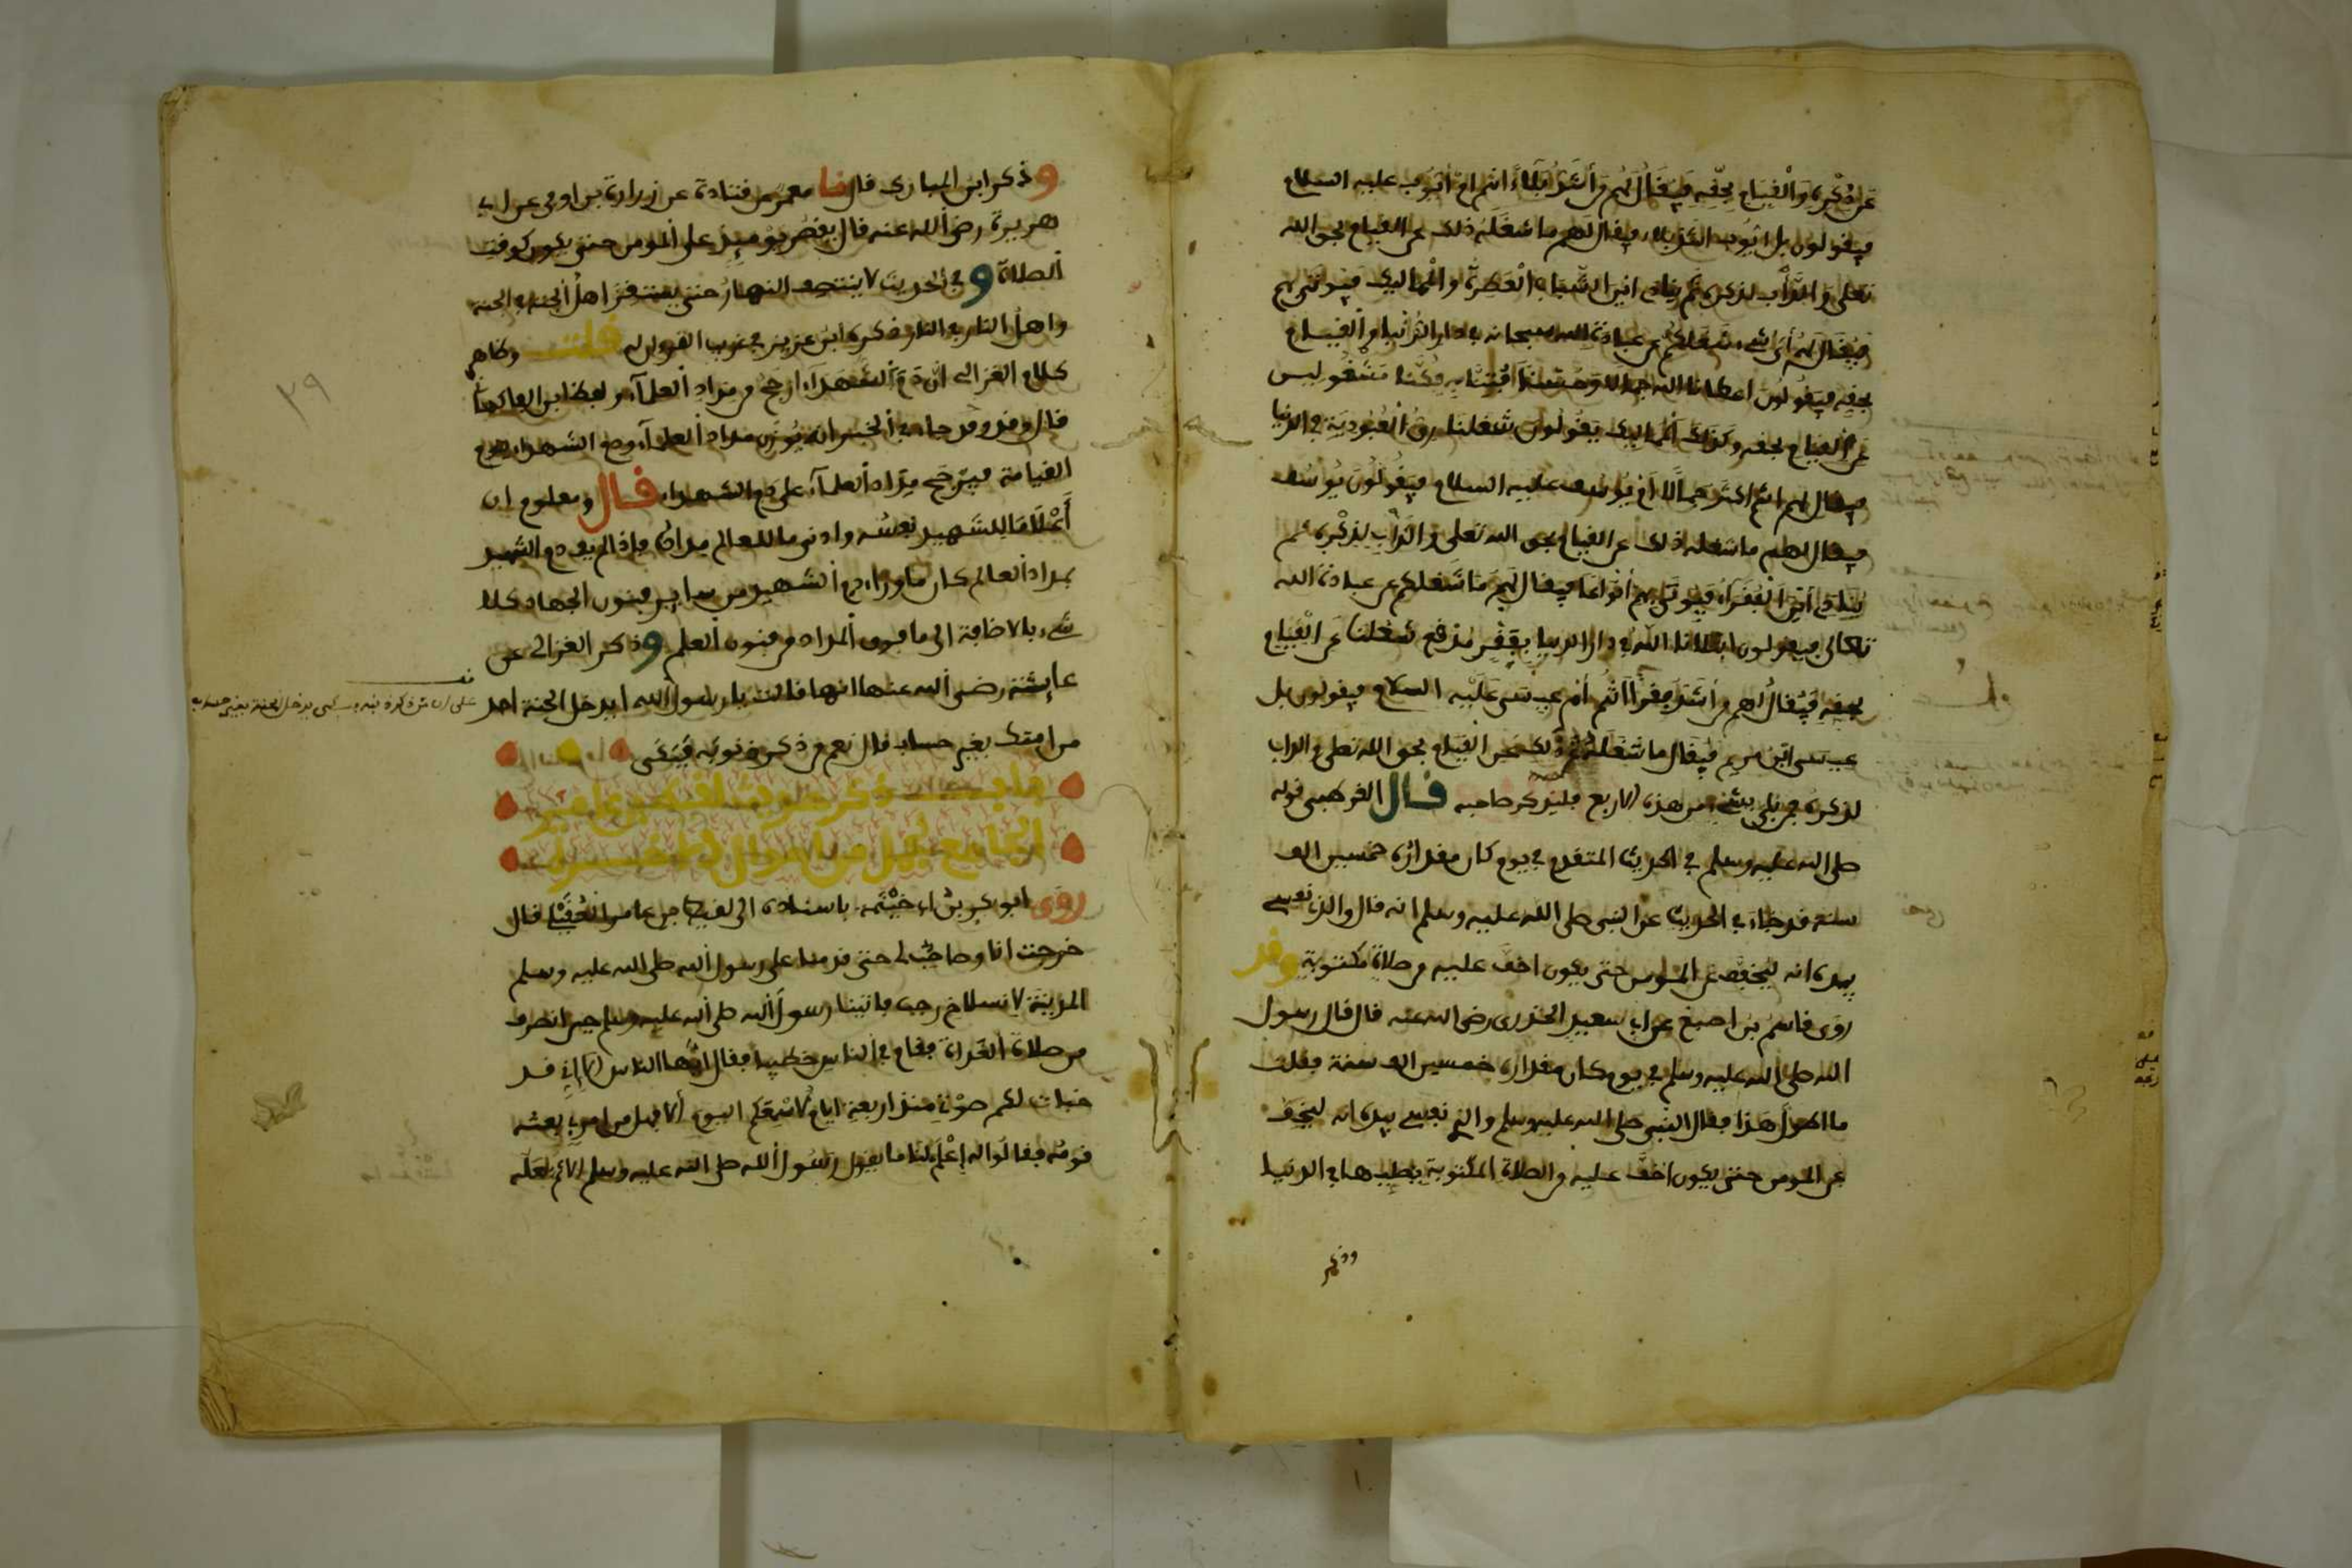 عن ذكره والقيام بحقه فيقال لهم من أشد بلاء انتم ام ايوب عليه السلام
فيقولون بل ايوب اشد بلاء فيقال لهم ما شغله ذلك عن القيام بحق الله
تعلى والدأب لذكره ثم ينادى اين الشباب العطرة والمماليك فيوتى بهم
فيقال لهم أى شىء شغلكم عن عبادة الله سبحانه في دار الدنيا والقيام
بحقه فيقولون اعطانا الله جمالا وحسنا افتتنا به فكنا مشغولين
عن القيام بحقه وكذلك المماليك يقولون شغلنا رق العبودية في الدنيا
فيقال لهم انتم اكثر جمالا ام يوسف عليه السلام فيقولون يوسف
فيقال لهم ما شغله ذلك عن القيام بحق الله تعلى والدأب لذكره ثم
ينادى أين الفقراء فيوتى بهم أفواجا فيقال لهم ما شغلكم عن عبادة الله
تعالى فيقولون ابتلانا الله في دار الدنيا بفقر مدقع شغلنا عن القيام
بحقه فيقال لهم من أشد فقرا انتم أم عيسى عليه السلام فيقولون بل
عيسى ابن مريم فيقال ما شغله ذلك عن القيام بحق الله تعلى والداب
لذكره فمن بلى بشىء من هذه الاربع فليذكر صاحبه قال القرطبى قوله
صلى الله عليه وسلم في الحديث المتقدم في يوم كان مقداره خمسين الف
سنة قد جاء في الحديث عن النبى صلى الله عليه وسلم انه قال والذى نفسى
بيده انه ليخفف عن المومن حتى يكون اخف عليه من صلاة مكتوبة وقد
روى قاسم بن اصبغ عن ابى سعيد الخدرى رضى الله عنه قال قال رسول
الله صلى الله عليه وسلم في يوم كان مقداره خمسين الف سنة فقلت
ما اطول هذا فقال النبى صلى الله عليه وسلم والذى نفسى بيده انه ليخفف
عن المومن حتى يكون اخف عليه من الصلاة المكتوبة يصليها في الدنيا
وذكر ابن المبارك قال نا معمر عن قتادة عن زرارة بن اوفى عن ابى
هريرة رضى الله عنه قال يقصر يوميذ على المومن حتى يكون كوقت
الصلاة و في الحديث لا ينتصف النهار حتى يستقر اهل الجنة في الجنة
واهل النار في النار ذكره ابن عزيز في غريب القرءان له قلت وظاهر
كلام الغزالى ان دم الشهداء ارجح من مداد العلماء ولفظ ابن الفاكهانى
قال وقد جاء في الخبر انه يوزن مداد العلماء ودم الشهداء يوم
القيامة فيرجح مداد العلماء على دم الشهداء قال ومعلوم ان
أعلا ما للشهيد نفسه وادنى ما للعالم مداده فإذا لم يف دم الشهيد
بمداد العالم كان ما وراء دم الشهيد من ساير فنون الجهاد كلا
شىء بالاضافة الى ما فوق المداد من فنون العلم وذكر الغزالى عن
عايشة رضى الله عنها انها قالت يا رسول الله أيدخل الجنة احد
من امتك بغير حساب قال نعم من ذكر ذنوبه فبكى
٢٩
باب ذكر حديث لقيط بن عامر
الجامع
روى أبو بكر بن ابى خيثمة باسناده الى لقيط بن عامر العقيلى قال
خرجت انا وصاحب لى حتى قدمنا على رسول الله صلى الله عليه وسلم
المدينة لانسلاخ رجب فاتينا رسول الله صلى الله عليه وسلم حين انصرف
من صلاة الغداة فقام في الناس خطيبا فقال ايها الناس الا إنى قد
خبات لكم صوتى منذ اربعة ايام لاسمعكم اليوم ألا فهل من امرئ بعثه
قومه فقالوا له إعلم لنا ما يقول رسول الله صلى الله عليه وسلم الا ثم لعله